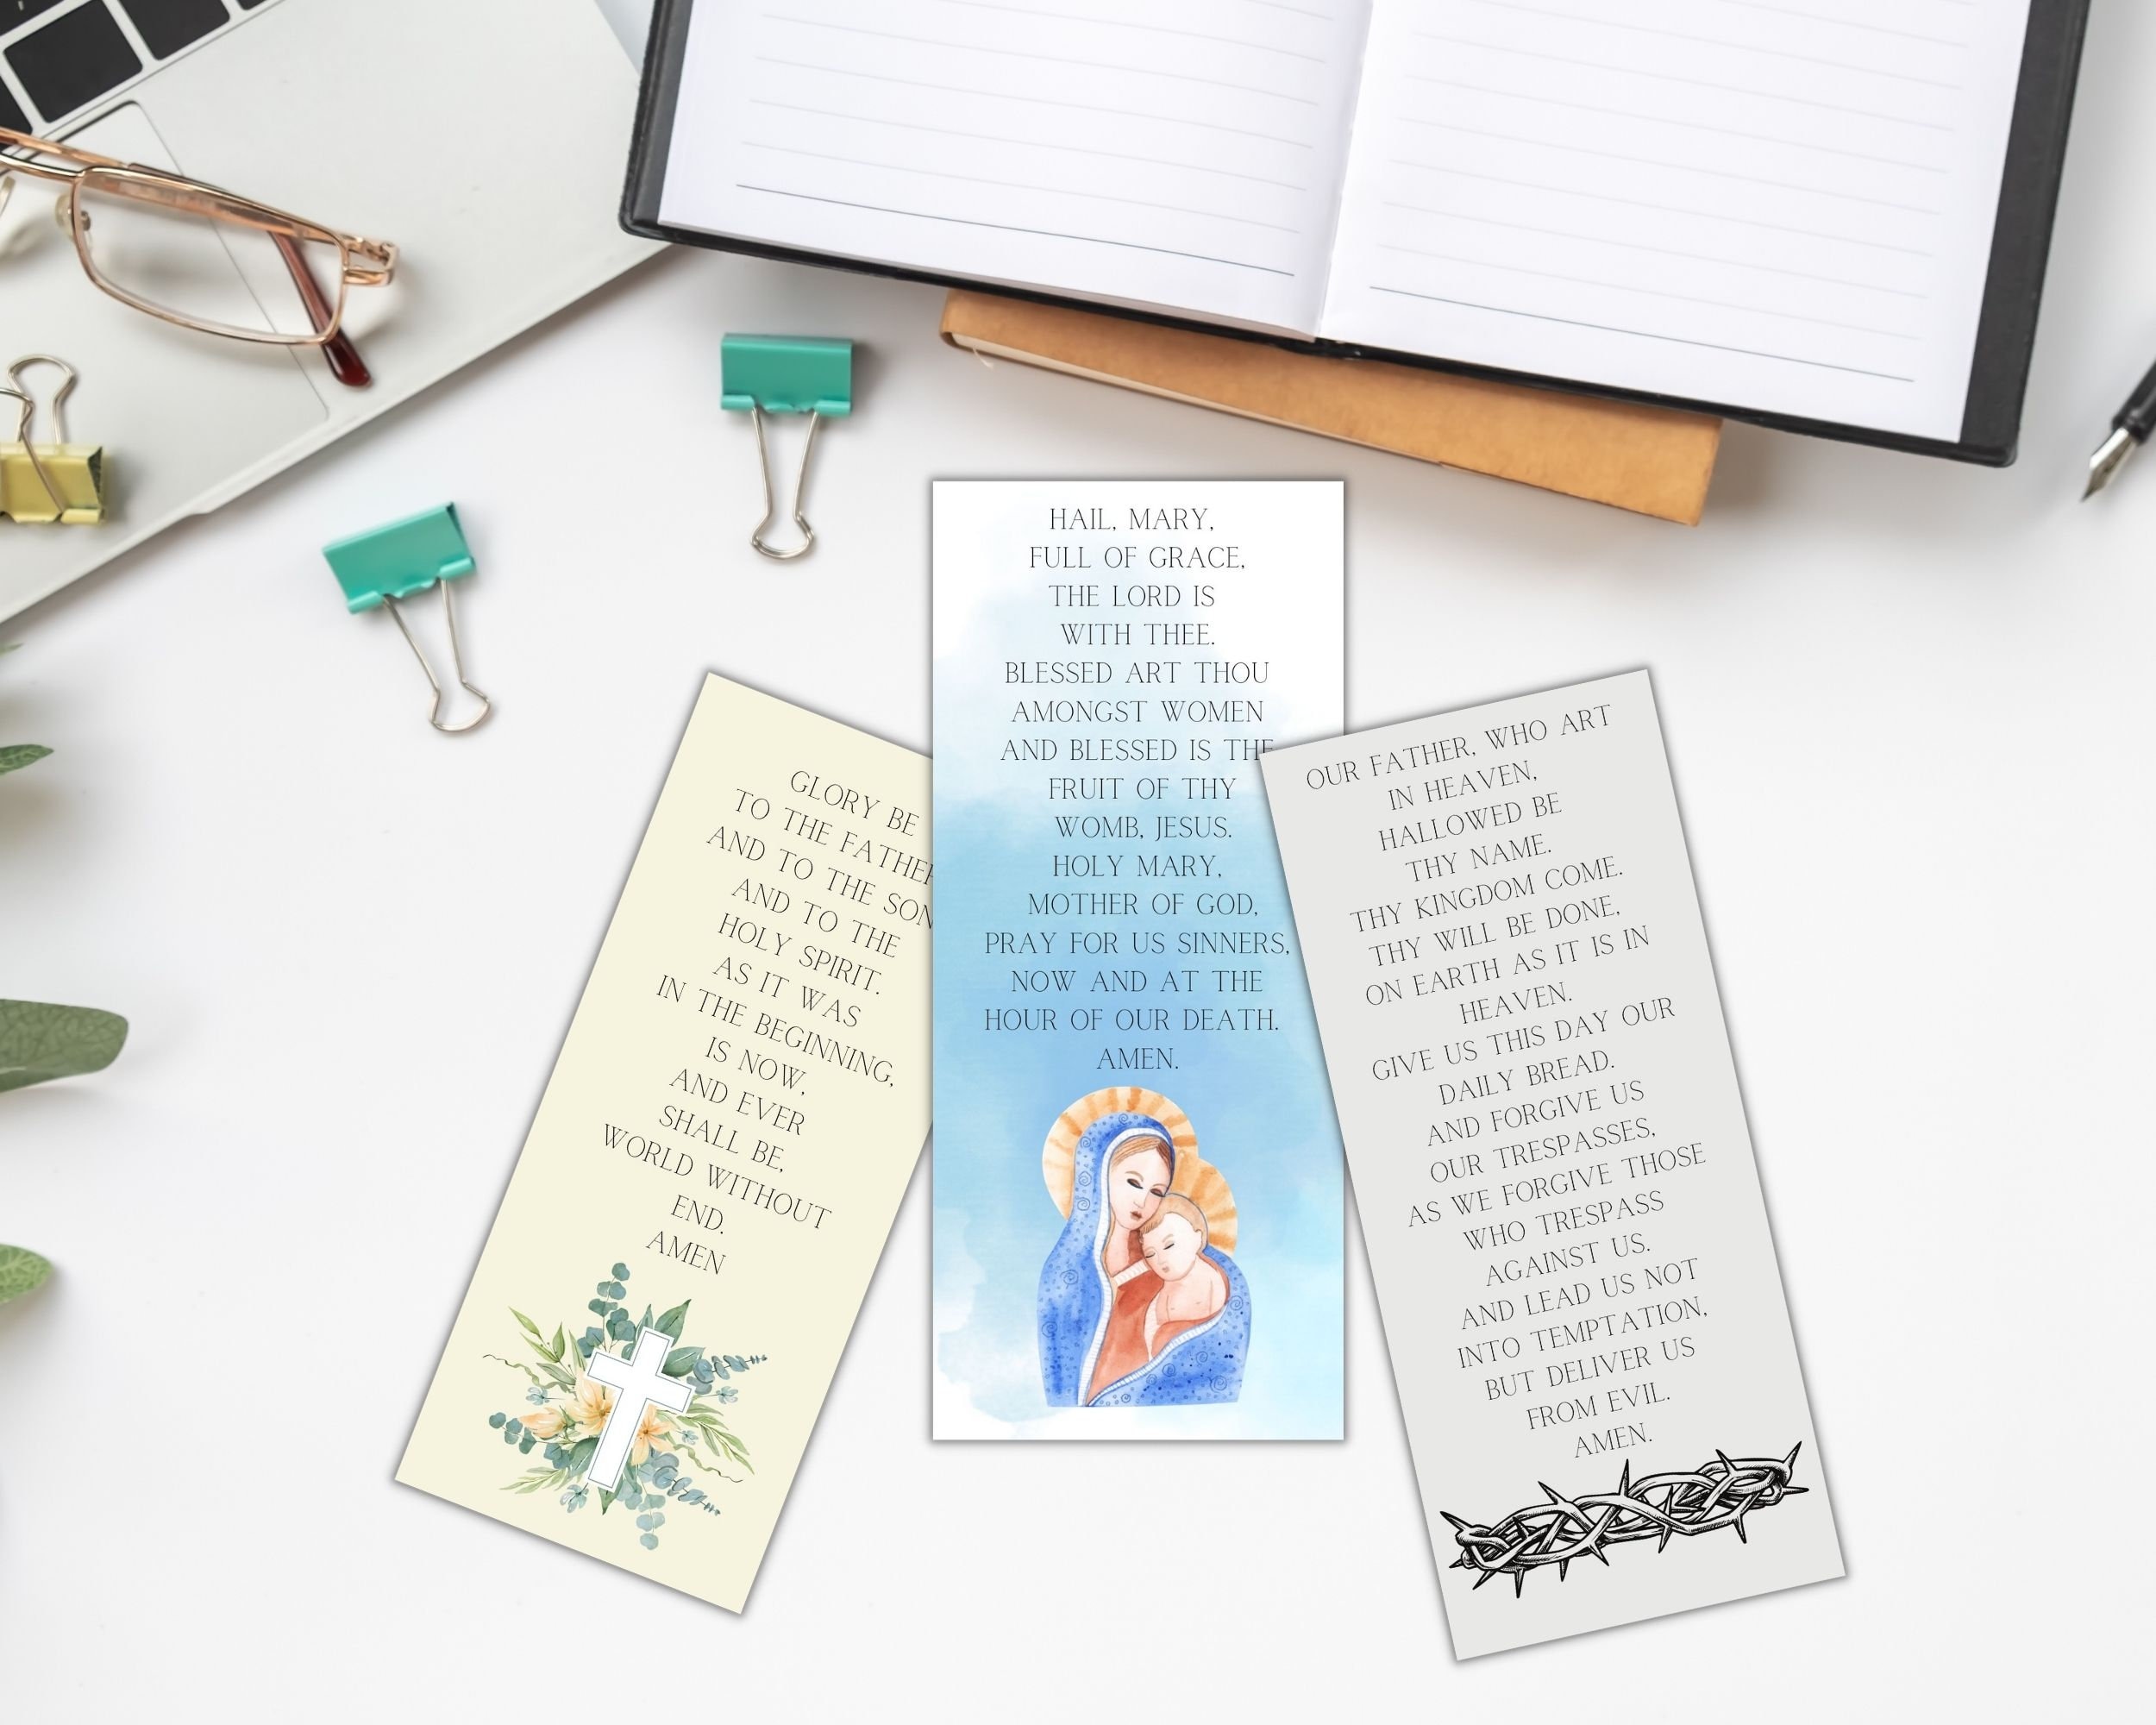 GLORY BE
TO THE FATHER
AND TO THE SON
AND TO THE
HOLY SPIRIT.
AS IT WAS
IN THE BEGINNING,
IS NOW,
AND EVER
SHALL BE,
WORLD WITHOUT
END.
AMEN
HAIL, MARY,
FULL OF GRACE,
THE LORD IS
WITH THEE.
BLESSED ART THOU
AMONGST WOMEN
AND BLESSED IS THE
FRUIT OF THY
WOMB, JESUS.
HOLY MARY,
MOTHER OF GOD,
PRAY FOR US SINNERS,
NOW AND AT THE
HOUR OF OUR DEATH.
AMEN.
OUR FATHER, WHO ART
IN HEAVEN,
HALLOWED BE
THY NAME.
THY KINGDOM COME.
THY WILL BE DONE,
ON EARTH AS IT IS IN
HEAVEN.
GIVE US THIS DAY OUR
DAILY BREAD.
AND FORGIVE US
OUR TRESPASSES,
AS WE FORGIVE THOSE
WHO TRESPASS
AGAINST US.
AND LEAD US NOT
INTO TEMPTATION,
BUT DELIVER US
FROM EVIL.
AMEN.